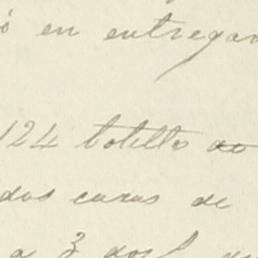 ó en entregar
124 botello
dos caros de
a 3